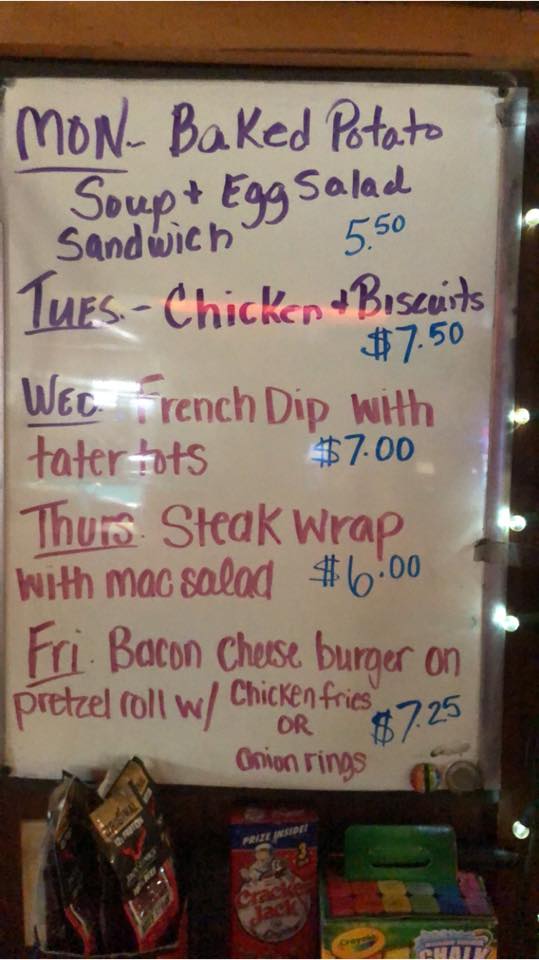 MON- Baked Potato
Soup + Egg Salad
Sandwich 5.50
TUES.- Chicken + Biscuits
$7.50
WED. French Dip with
tater tots $7.00
Thurs. Steak Wrap
with mac salad $6.00
Fri. Bacon Cheese burger on
pretzel roll w/ Chicken fries $7.25
OR
Onion rings
ORIGINAL
PRIZE INSIDE!
Cracker
Jack
Crayola
CHALK